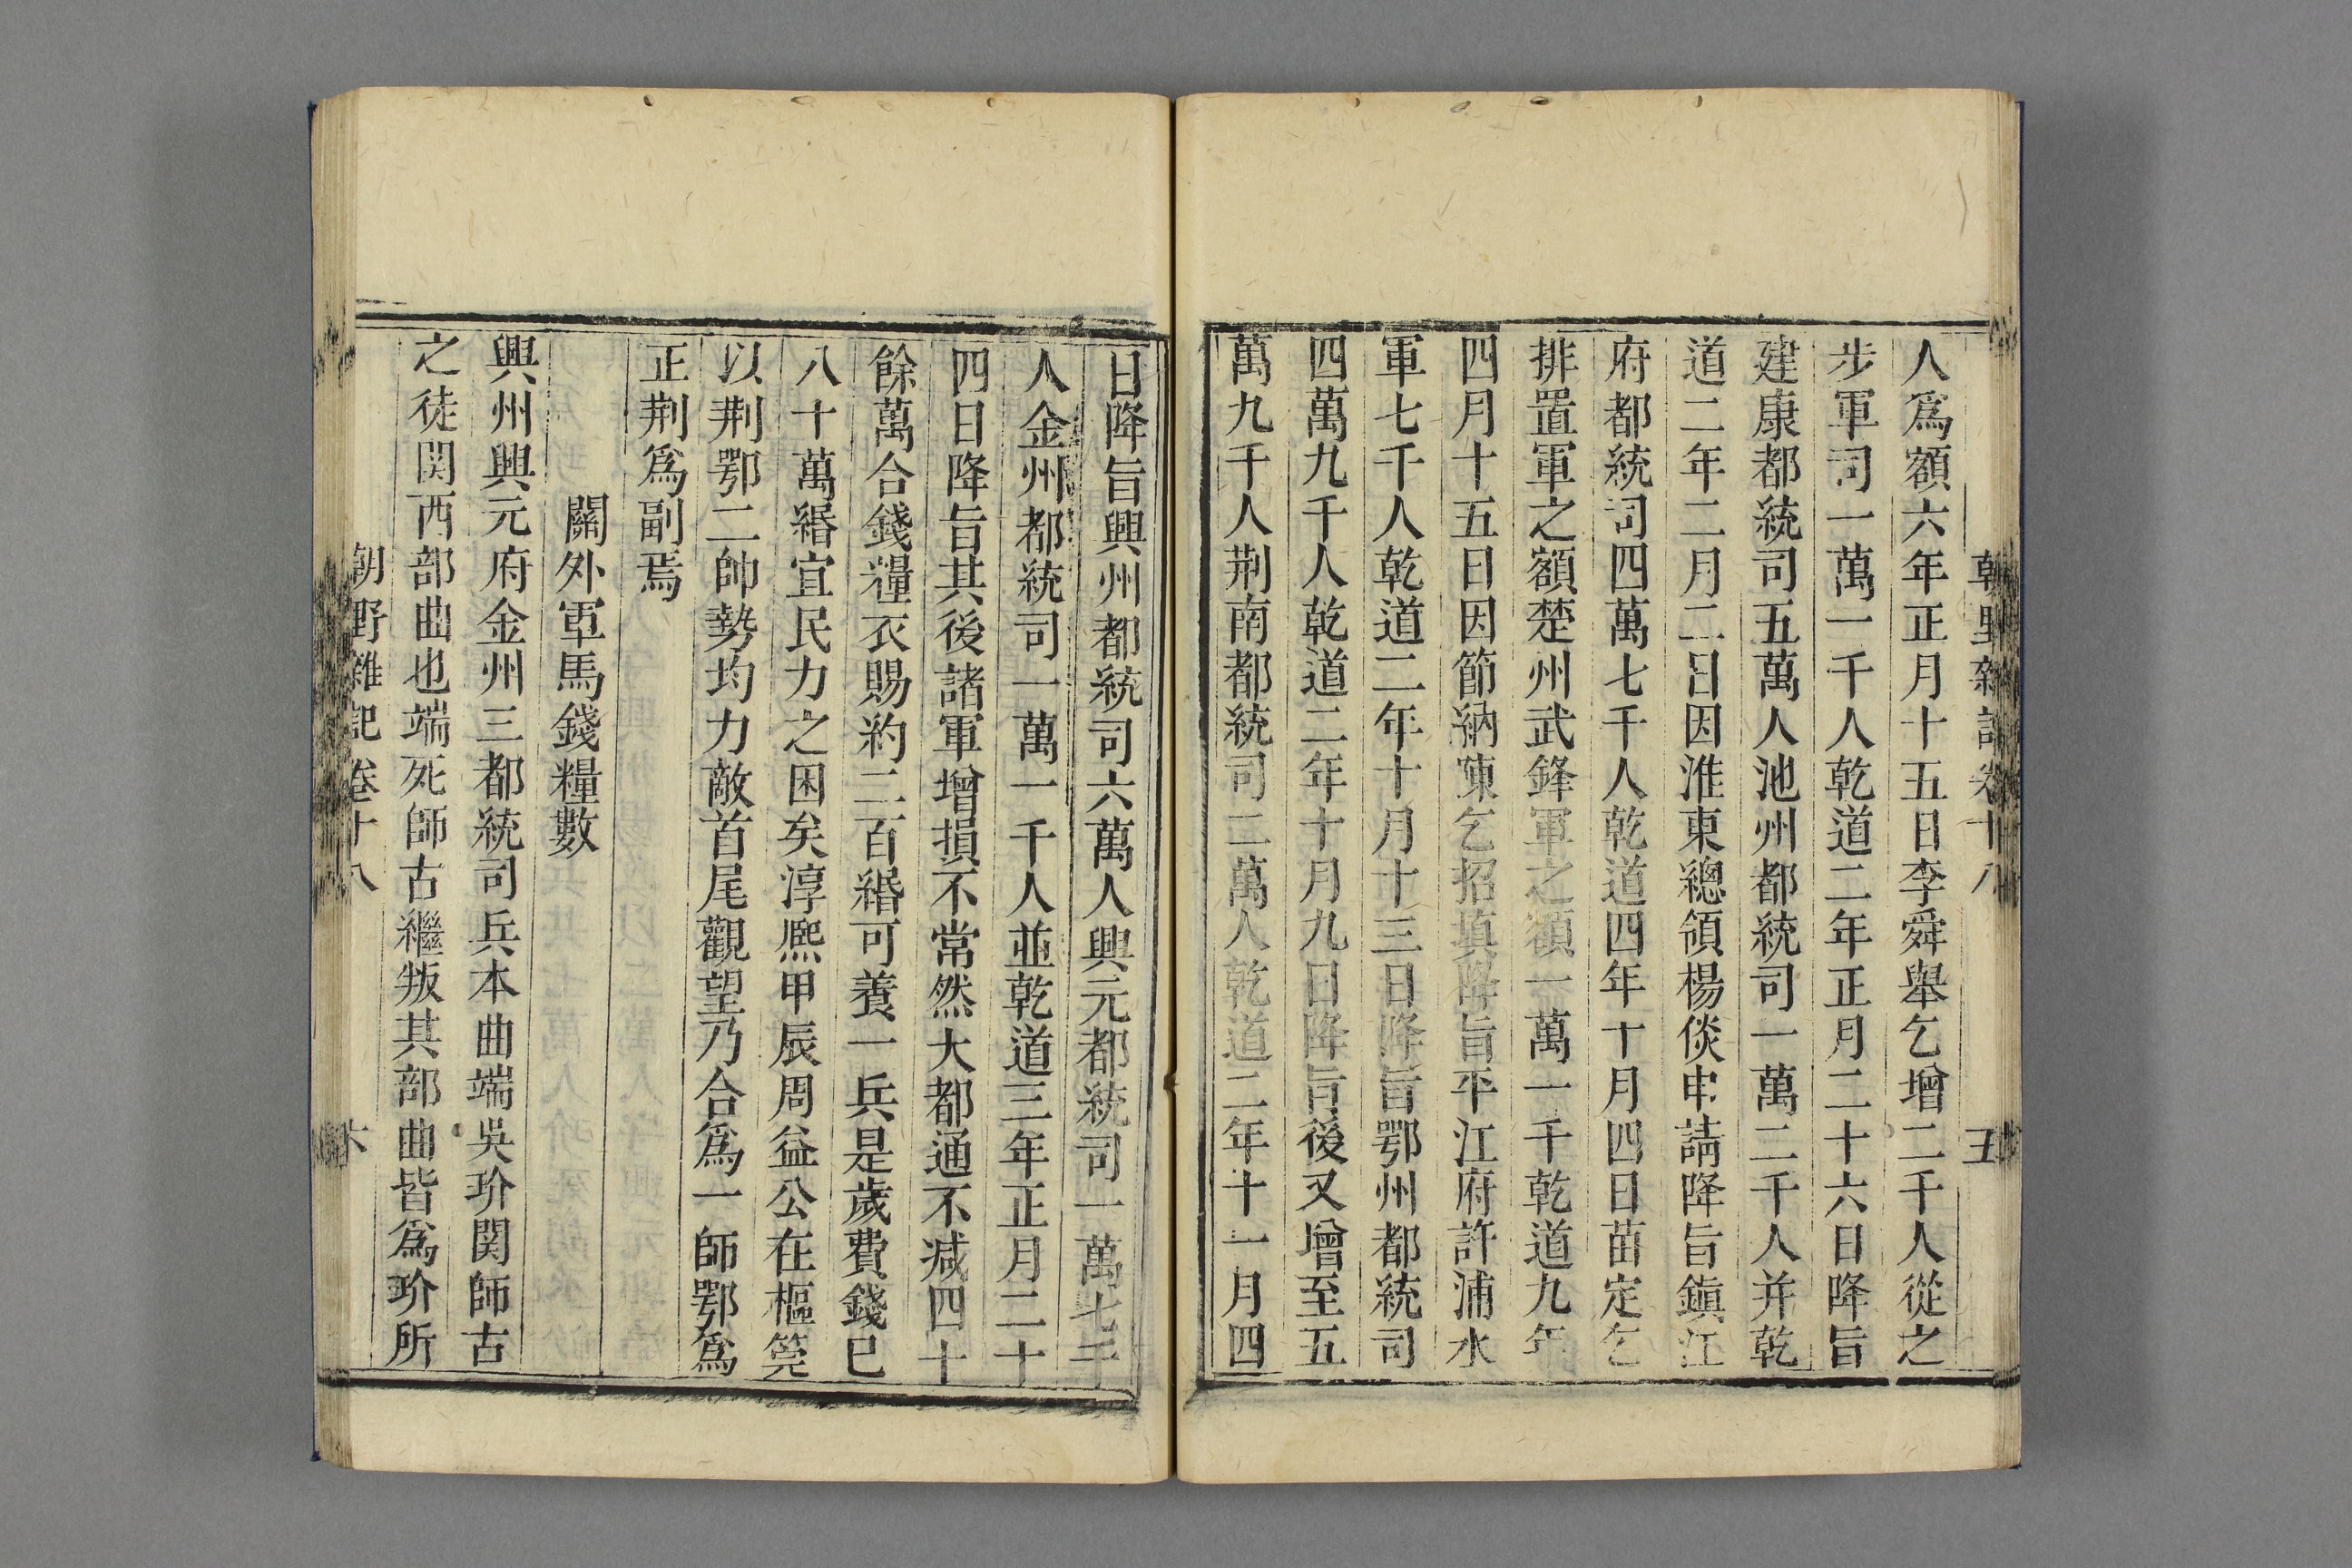 朝野雜記卷十八
五
人爲額六年正月十五日李舜舉乞增二千人從之
步軍司一萬一千人乾道二年正月二十六日降旨
建康都統司五萬人池州都統司一萬二千人并乾
道二年二月二日因淮東總領楊倓申請降旨鎭江
府都統司四萬七千人乾道四年十月四日苗定乞
排置軍之額楚州武鋒軍之額一萬一千乾道九年
四月十五日因節納陳乞招填降旨平江府許浦水
軍七千人乾道二年十月十三日降旨鄂州都統司
四萬九千人乾道二年十月九日降旨後又增至五
萬九千人荆南都統司二萬人乾道二年十一月四
日降旨興州都統司六萬人興元都統司一萬七千
人金州都統司一萬一千人並乾道三年正月二十
四日降旨其後諸軍增損不常然大都通不减四十
餘萬合錢糧衣賜約二百緡可養一兵是歲費錢巳
八十萬緡宜民力之困矣淳熙甲辰周益公在樞筦
以荆鄂二帥勢均力敵首尾觀望乃合爲一師鄂爲
正荆爲副焉
關外軍馬錢糧數
興州興元府金州三都統司兵本曲端吳玠関師古
之徒関西部曲也端死師古繼叛其部曲皆爲玠所
朝野雜記卷十八
六